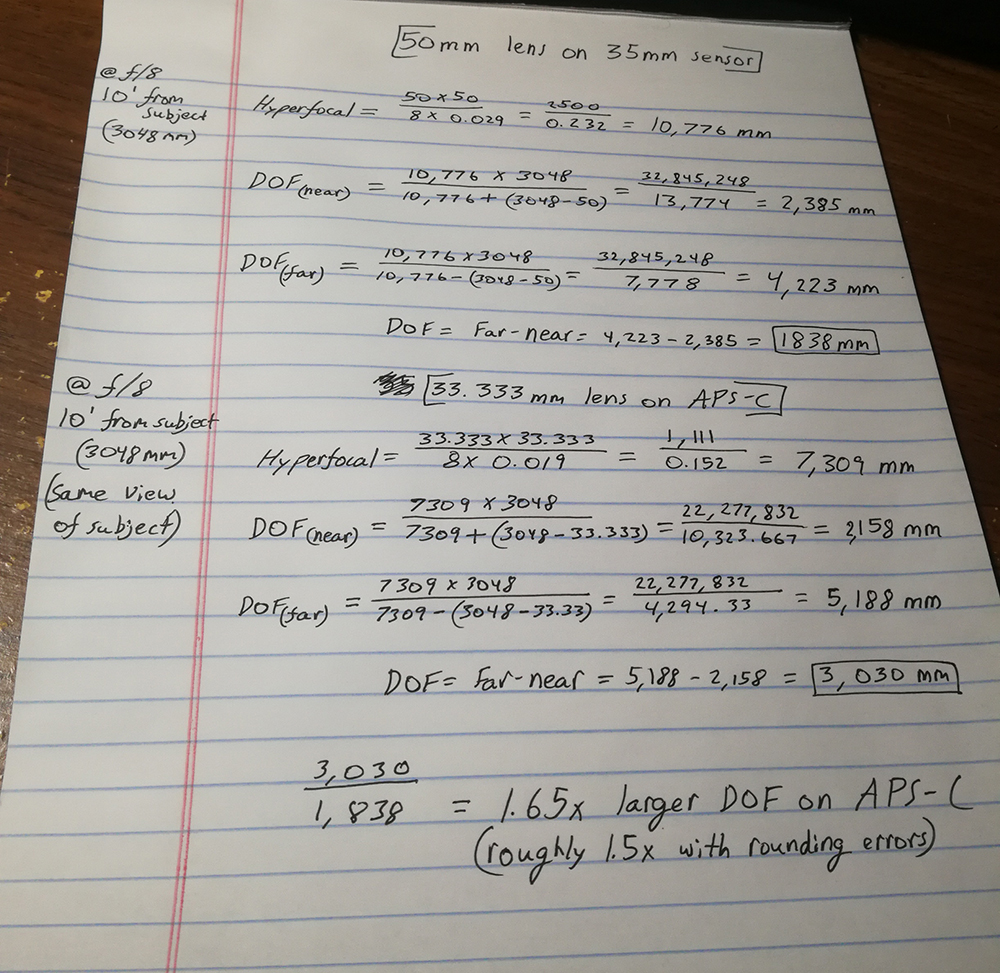 50mm lens on 35mm sensor
@ f/8
10' from
subject
(3048 mm)
Hyperfocal = 50 x 50 / 8 x 0.029 = 2500 / 0.232 = 10,776 mm
DOF(near) = 10,776 x 3048 / 10,776 + (3048-50) = 32,845,248 / 13,774 = 2,385 mm
DOF(far) = 10,776 x 3048 / 10,776 - (3048-50) = 32,845,248 / 7,778 = 4,223 mm
DOF = Far-near = 4,223 - 2,385 = 1838 mm
@ f/8
10' from subject
(3048 mm)
(same view
of subject)
33.333mm lens on APS-C
Hyperfocal = 33.333 x 33.333 / 8 x 0.019 = 1,111 / 0.152 = 7,309 mm
DOF(near) = 7309 x 3048 / 7309 + (3048 - 33.333) = 22,277,832 / 10,323.667 = 2,158 mm
DOF(far) = 7309 x 3048 / 7309 - (3048 - 33.33) = 22,277,832 / 4,294.33 = 5,188 mm
DOF = Far-near = 5,188 - 2,158 = 3,030 mm
3,030 / 1,838 = 1.65x larger DOF on APS-C
(roughly 1.5x with rounding errors)